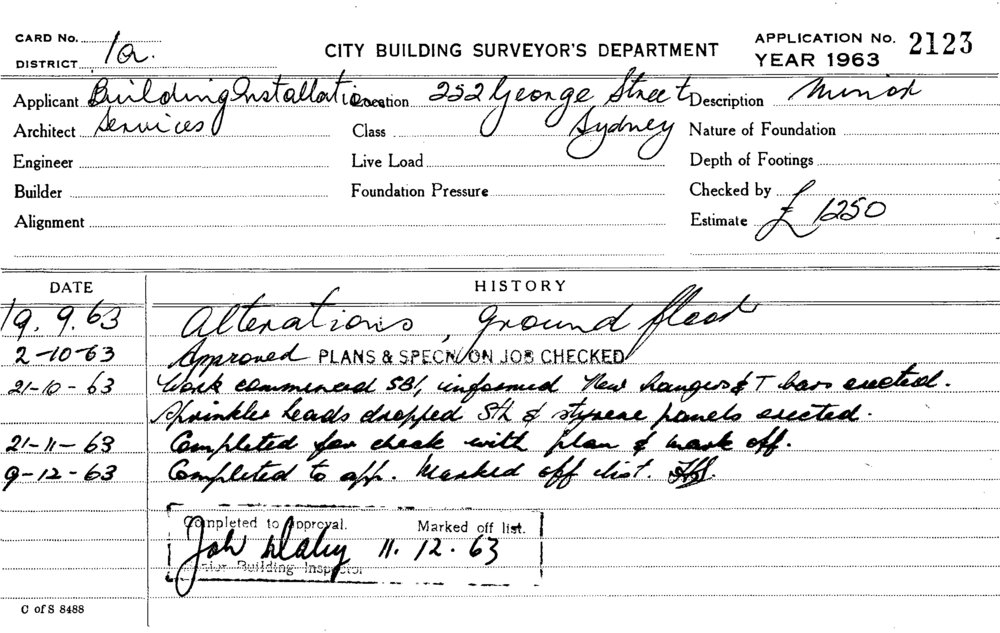 CARD No.
DISTRICT 1a.
CITY BUILDING SURVEYOR'S DEPARTMENT
APPLICATION No. 2123
YEAR 1963
Applicant Building Installation Location 252 George Street Description Minor
Architect Services Class Sydney Nature of Foundation
Engineer Live Load Depth of Footings
Builder Foundation Pressure Checked by
Alignment Estimate £1250
DATE HISTORY
19.9.63 Alterations, ground floor
2-10-63 Approved PLANS & SPECN/ON JOB CHECKED
21-10-63 Work commenced informed New hangers & T bars erected.
Sprinkler heads dropped & styrene panels erected.
21-11-63 Completed for check with plan & mark off.
9-12-63 Completed to app. Marked off list.
Completed to Approval. Marked off list.
Daley 11.12.63
Senior Building Inspector
C of S 8488